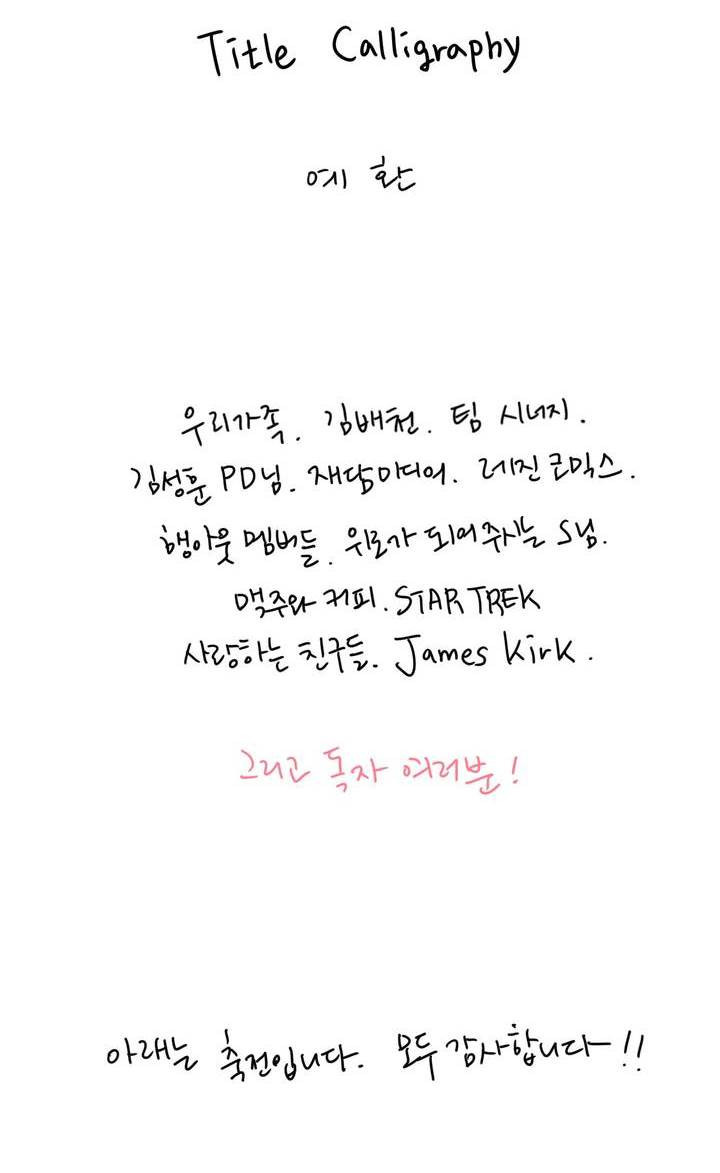 Title Calligraphy
예환
우리가족. 김배천. 팀 시너지.
김성훈 PD님. 재담미디어. 레진코믹스.
행아웃 멤버들. 위로가 되어주시는 S님.
맥주와 커피. STAR TREK
사랑하는 친구들. James Kirk.
그리고 독자 여러분!
아래는 축전입니다. 모두 감사합니다-!!